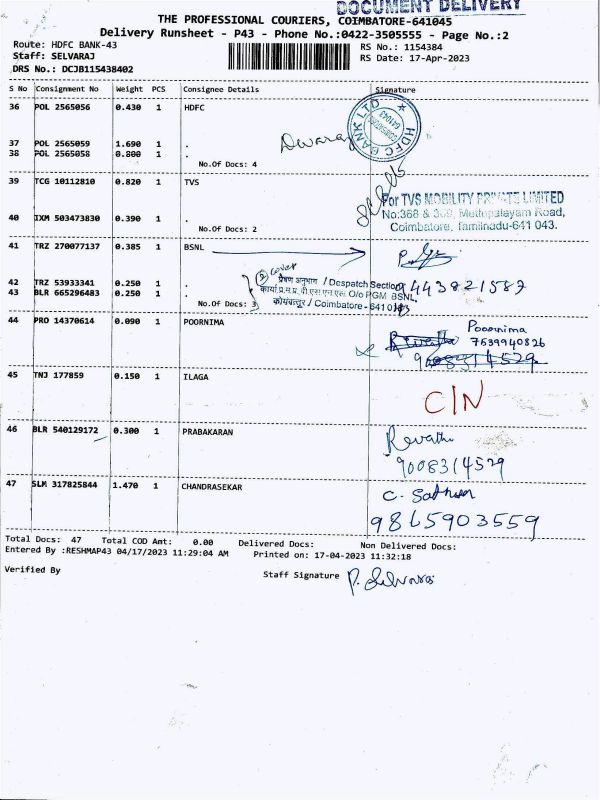 DOCUMENT DELIVERY
THE PROFESSIONAL COURIERS, COIMBATORE-641045
Delivery Runsheet - P43 - Phone No.:0422-3505555 - Page No.:2
Route: HDFC BANK-43
RS No.: 1154384
Staff: SELVARAJ
RS Date: 17-Apr-2023
DRS No.: DCJB115438402
S No Consignment No Weight PCS Consignee Details Signature
36 POL 2565056 0.430 1 HDFC
HDFC BANK LTD
641043
37 POL 2565059 1.690 1 .
38 POL 2565058 0.800 1 .
Dwaraj
No.Of Docs: 4
39 TCG 10112810 0.820 1 TVS
For TVS MOBILITY PRIVATE LIMITED
No:368 & 369, Mettupalayam Road,
Coimbatore, Tamilnadu-641 043.
40 IXM 503473830 0.390 1 .
No.Of Docs: 2
41 TRZ 270077137 0.385 1 BSNL
2 cover
प्रेषण अनुभाग / Despatch Section
42 TRZ 53933341 0.250 1 .
43 BLR 665296483 0.250 1 .
O/o PGM BSNL,
कोयंबत्तूर / Coimbatore - 641 043
9443821587
No.Of Docs: 3
44 PRO 14370614 0.090 1 POORNIMA
Poornima
7639940826
Revathi
9008314529
45 TNJ 177859 0.150 1 ILAGA
C/N
46 BLR 540129172 0.300 1 PRABAKARAN
Revathi
9008314529
47 SLM 317825844 1.470 1 CHANDRASEKAR
9865903559
Total Docs: 47 Total COD Amt: 0.00 Delivered Docs: Non Delivered Docs:
Entered By :RESHMAP43 04/17/2023 11:29:04 AM Printed on: 17-04-2023 11:32:18
Verified By
Staff Signature P. Selvaraj